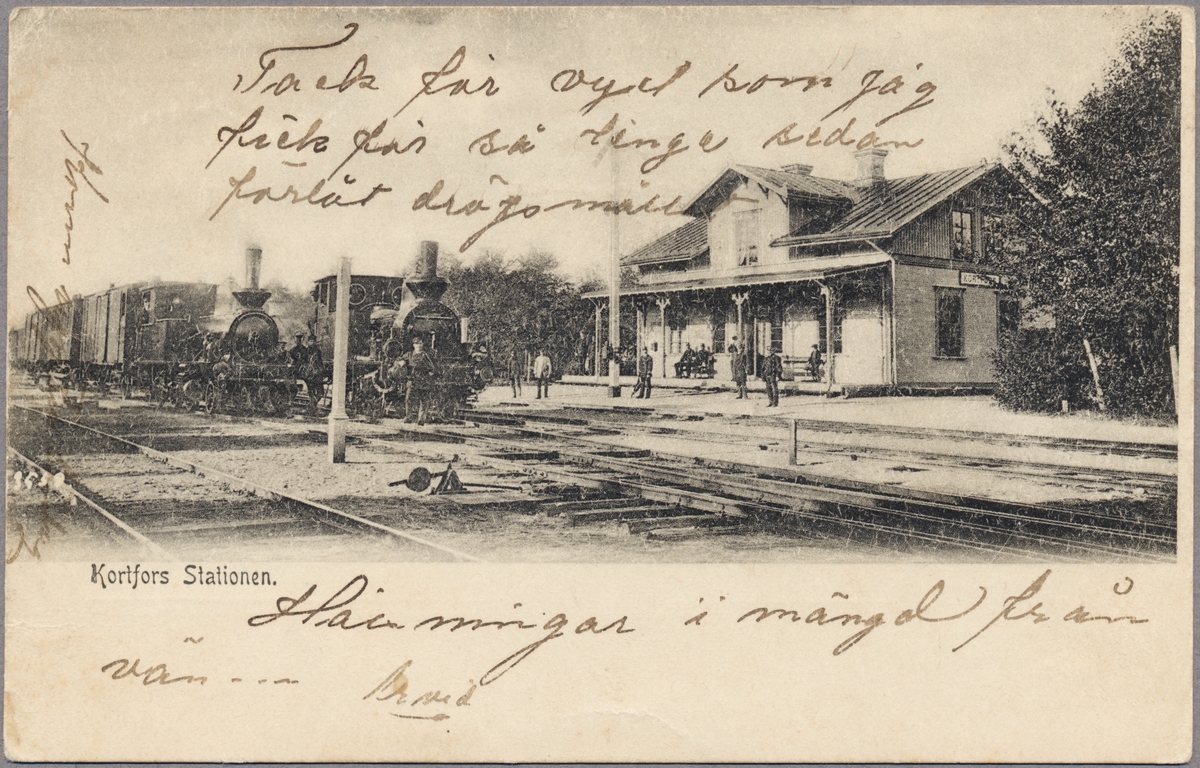 Tack för vyet som jag
fick för så länge sedan
förlåt drögsmålet
Kortfors Stationen.
Hälsningar i mängd från
vän ---
Arvid